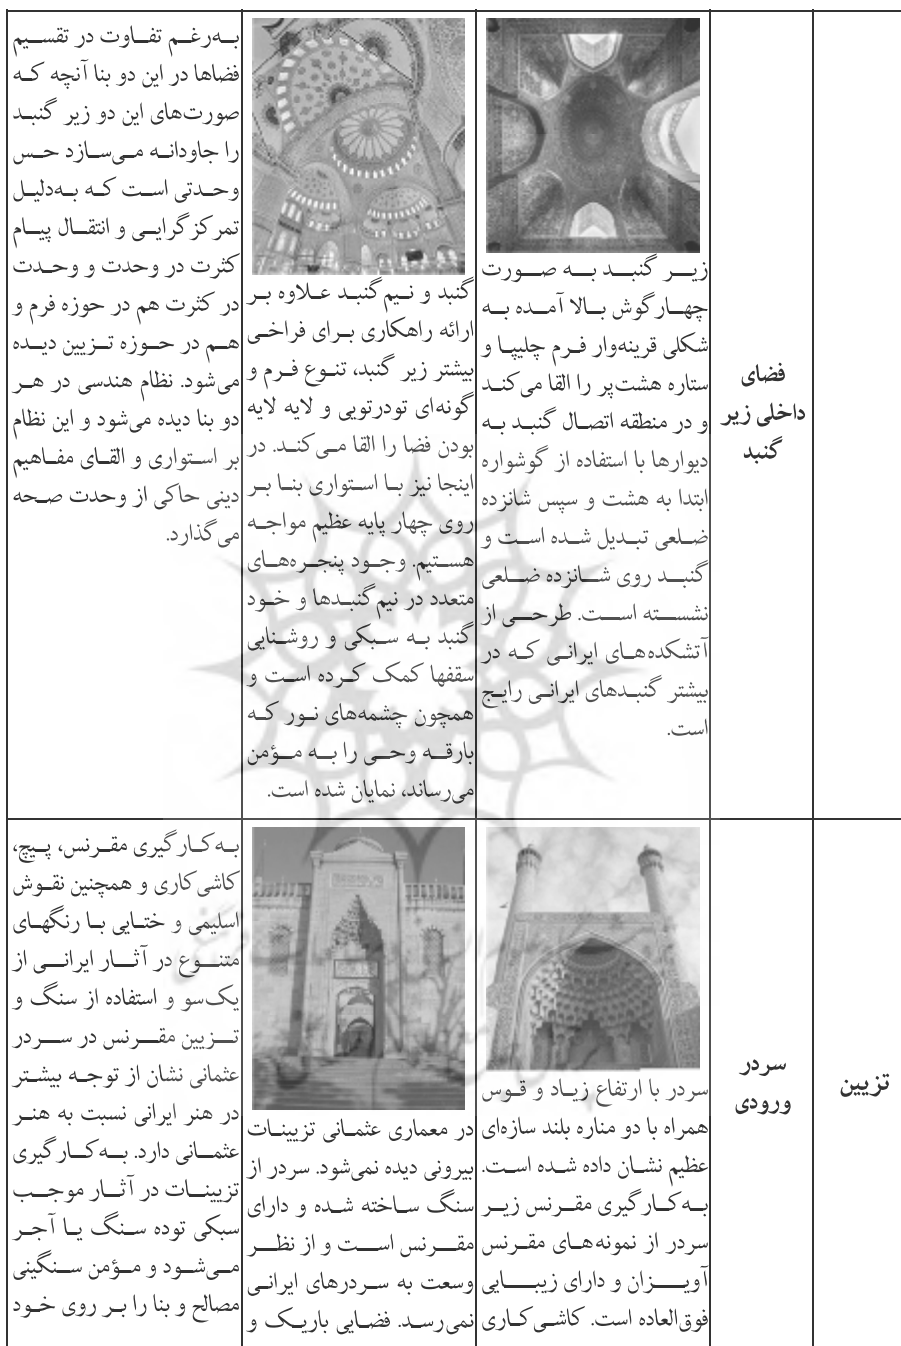 فضای
داخلی زیر
گنبد
زیر گنبد به صورت
چهارگوش بالا آمده به
شکلی قرینه‌وار فرم چلیپا و
ستاره هشت‌پر را القا می‌کند
و در منطقه اتصال گنبد به
دیوارها با استفاده از گوشواره
ابتدا به هشت و سپس شانزده
ضلعی تبدیل شده است و
گنبد روی شانزده ضلعی
نشسته است. طرحی از
آتشکده‌های ایرانی که در
بیشتر گنبدهای ایرانی رایج
است.
گنبد و نیم‌گنبد علاوه بر
ارائه راهکاری برای فراخی
بیشتر زیر گنبد، تنوع فرم و
گونه‌ای تودرتویی و لایه لایه
بودن فضا را القا می‌کند. در
اینجا نیز با استواری بنا بر
روی چهار پایه عظیم مواجه
هستیم. وجود پنجره‌های
متعدد در نیم‌گنبدها و خود
گنبد به سبکی و روشنایی
سقفها کمک کرده است و
همچون چشمه‌های نور که
بارقه وحی را به مؤمن
می‌رساند، نمایان شده است.
به‌رغم تفاوت در تقسیم
فضاها در این دو بنا آنچه که
صورت‌های این دو زیر گنبد
را جاودانه می‌سازد حس
وحدتی است که به‌دلیل
تمرکزگرایی و انتقال پیام
کثرت در وحدت و وحدت
در کثرت هم در حوزه فرم و
هم در حوزه تزیین دیده
می‌شود. نظام هندسی در هر
دو بنا دیده می‌شود و این نظام
بر استواری و القای مفاهیم
دینی حاکی از وحدت صحه
می‌گذارد.
تزیین
سردر
ورودی
سردر با ارتفاع زیاد و قوس
همراه با دو مناره بلند سازه‌ای
عظیم نشان داده شده است.
به‌کارگیری مقرنس زیر
سردر از نمونه‌های مقرنس
آویزان و دارای زیبایی
فوق‌العاده است. کاشی‌کاری
در معماری عثمانی تزیینات
بیرونی دیده نمی‌شود. سردر از
سنگ ساخته شده و دارای
مقرنس است و از نظر
وسعت به سردرهای ایرانی
نمی‌رسد. فضایی باریک و
به‌کارگیری مقرنس، پیچ،
کاشی‌کاری و همچنین نقوش
اسلیمی و ختایی با رنگهای
متنوع در آثار ایرانی از
یک‌سو و استفاده از سنگ و
تزیین مقرنس در سردر
عثمانی نشان از توجه بیشتر
در هنر ایرانی نسبت به هنر
عثمانی دارد. به‌کارگیری
تزیینات در آثار موجب
سبکی توده سنگ یا آجر
می‌شود و مؤمن سنگینی
مصالح و بنا را بر روی خود